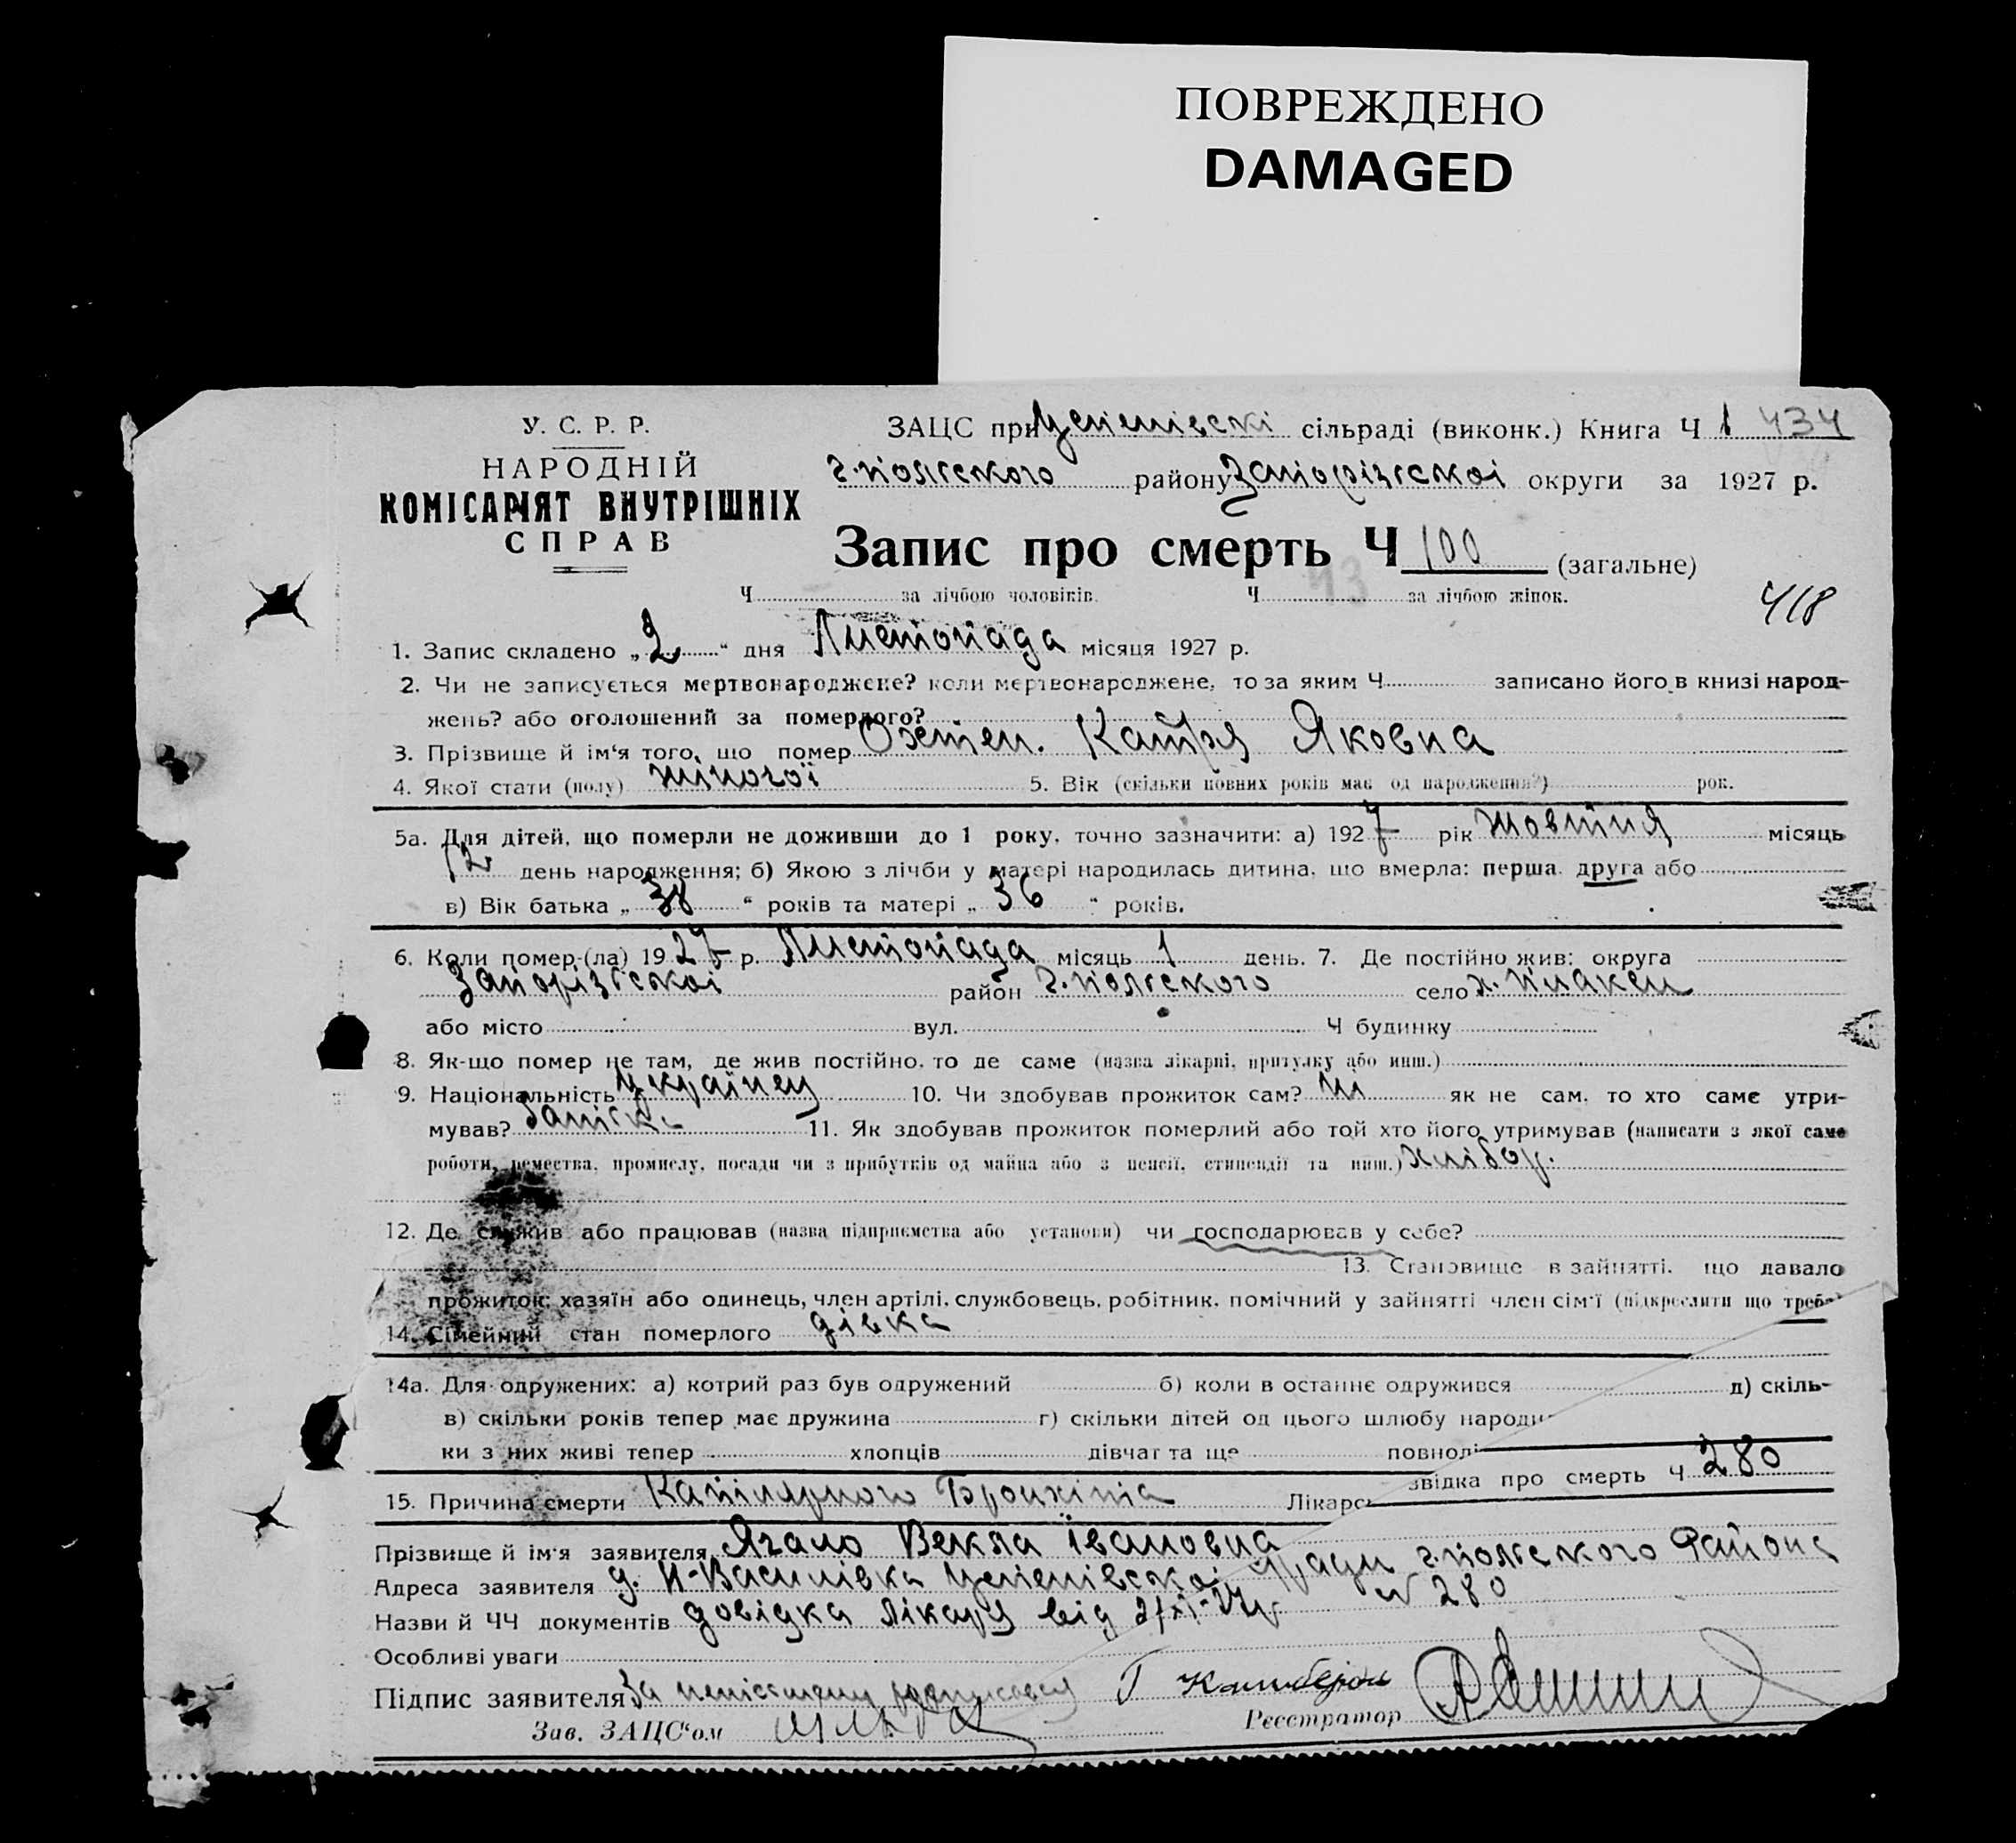 ПОВРЕЖДЕНО
DAMAGED
У. С. Р. Р.
НАРОДНІЙ
КОМІСАРІЯТ ВНУТРІШНІХ
СПРАВ
ЗАЦС при Успенівскі сільраді (виконк.) Книга Ч 1 434
г.польского району Запорізгскоі округи за 1927 р.
Запис про смерть Ч 100 (загальне)
Ч за лічбою чоловіків. Ч 43 за лічбою жінок.
418
1. Запис складено „2“ дня Листопада місяця 1927 р.
2. Чи не записується мертвонароджене? коли мертвонароджене, то за яким Ч записано його в книзі народ-
жень? або оголошений за померлого?
3. Прізвище й ім‘я того, що помер Катря Яковна
4. Якої стати (полу) жіногоі 5. Вік (скільки повних років має од народження?) рок.
5а. Для дітей, що померли не доживши до 1 року, точно зазначити: а) 1927 рік жовтня місяць
12 день народження; б) Якою з лічби у матері народилась дитина, що вмерла: перша, друга або
в) Вік батька „38“ років та матері „36“ років.
6. Коли помер-(ла) 1927 р. Листопада місяць 1 день. 7. Де постійно жив: округа
Запорізгскоі район г.польского село
або місто вул. Ч будинку
8. Як-що помер не там, де жив постійно, то де саме (назва лікарні, притулку або инш.)
9. Національність Українец 10. Чи здобував прожиток сам? ні як не сам, то хто саме утри-
мував? 11. Як здобував прожиток померлий або той хто його утримував (написати з якої саме
роботи, ремества, промислу, посади чи з прибутків од майна або з пенсії, стипендії та инш.) хлібор.
12. Де служив або працював (назва підприємства або установи) чи господарював у себе?
13. Становище в зайнятті, що давало
прожиток: хазяїн або одинець, член артілі, службовець, робітник, помічний у зайнятті член сім‘ї (підкреслити що треба)
14. Сімейний стан померлого дівка
14а. Для одружених: а) котрий раз був одружений б) коли в останнє одружився д) скіль-
в) скільки років тепер має дружина г) скільки дітей од цього шлюбу народи
ки з них живі тепер хлопців дівчат та ще повнолі
15. Причина смерти Капілярного Бронхіта Лікарс звідка про смерть Ч 280
Прізвище й ім‘я заявителя Векла Івановна
Адреса заявителя Н-Василівка Успенівскоі г.польского Района
Назви й ЧЧ документів довідка лікаря від 2/XI-27р № 280
Особливі уваги
Підпис заявителя За
Зав. ЗАЦС‘ом Реєстратор